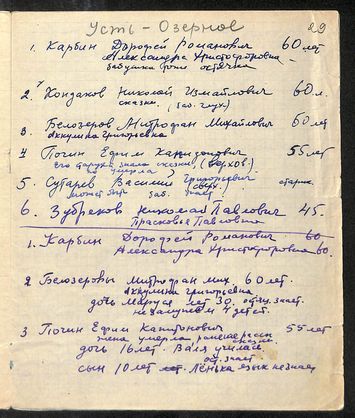 Усть-Озерное
29
1. Карбин Дорофей Романович 60 лет
Александра Христофоровна -
бабушка остячка
2. Кондаков Николай Измайлович 60 л.
сказки.
3. Белозеров Митрофан Михайлович 60 лет
Акулина Григорьевна
4 Почин Ефим Капитонович 55 лет
его старуха знала сказки,
умерла
5. Сутарев Василий Григорьевич старик.
может быть знает
6. Зубреков Николай Павлович 45.
Прасковья Павловна
1. Карбин Дорофей Романович 60
Александра Христофоровна 60.
2 Белозеровы Митрофан Мих. 60 лет.
Акулина Григорьевна
дочь Маруся лет 30. знает.
не замужем 4 дет.
3 Почин Ефим Капитонович 55 лет
жена умерла сказки.
дочь 16 лет. Валя училась
ост. знает.
сын 10 лет. Лёнька язык не знает